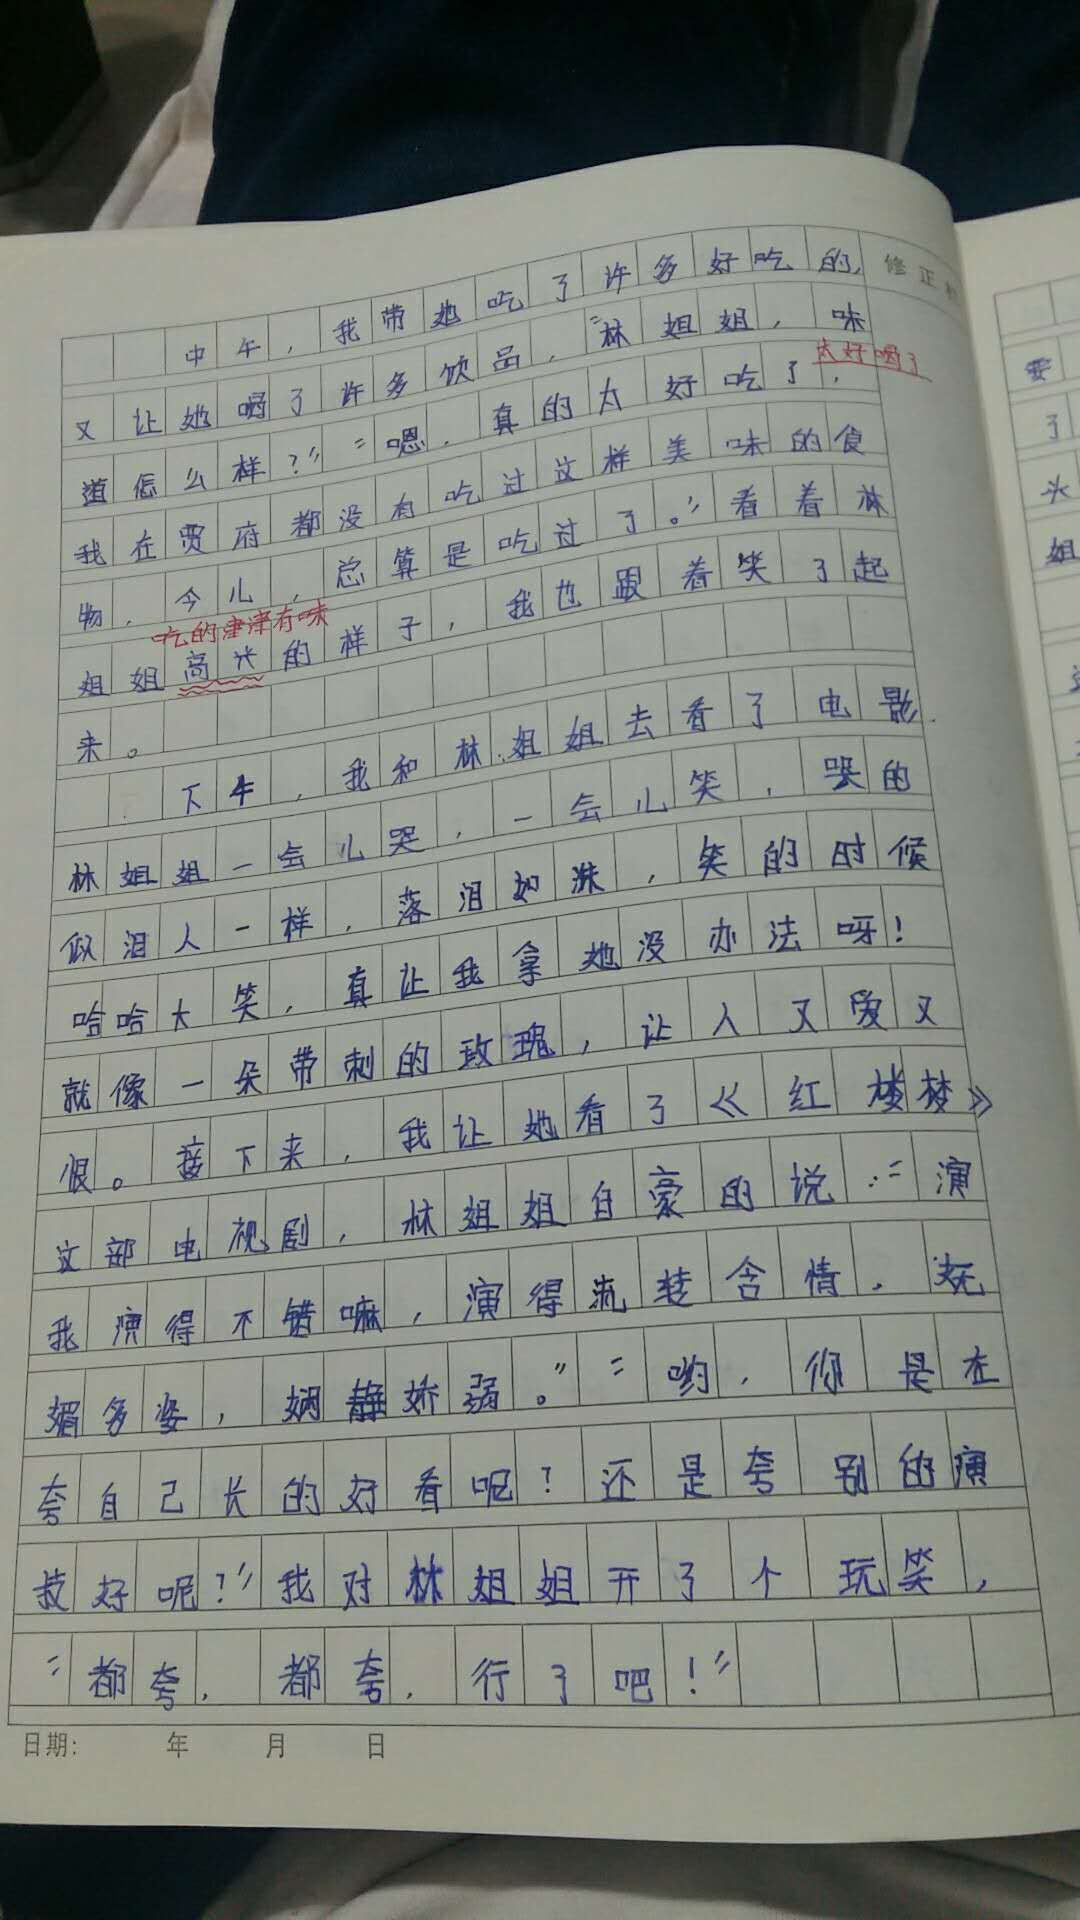 中午，我带她吃了许多好吃的，
修正
又让她喝了许多饮品，“林姐姐，味
太好喝了
道怎么样？”“嗯，真的太好吃了，
我在贾府都没有吃过这样美味的食
物，今儿，总算是吃过了。”看着林
吃的津津有味
姐姐高兴的样子，我也跟着笑了起
来。
下午，我和林姐姐去看了电影，
林姐姐一会儿哭，一会儿笑，哭的
似泪人一样，落泪如珠，笑的时候
哈哈大笑，真让我拿她没办法呀！
就像一朵带刺的玫瑰，让人又爱又
恨。接下来，我让她看了《红楼梦》
这部电视剧，林姐姐自豪的说：“演
我演得不错嘛，演得流转含情，妩
媚多姿，娴静娇弱。”“哟，你是在
夸自己长的好看呢？还是夸别的演
技好呢？”我对林姐姐开了个玩笑，
“都夸，都夸，行了吧！”
日期： 年 月 日
要
了
头
姐